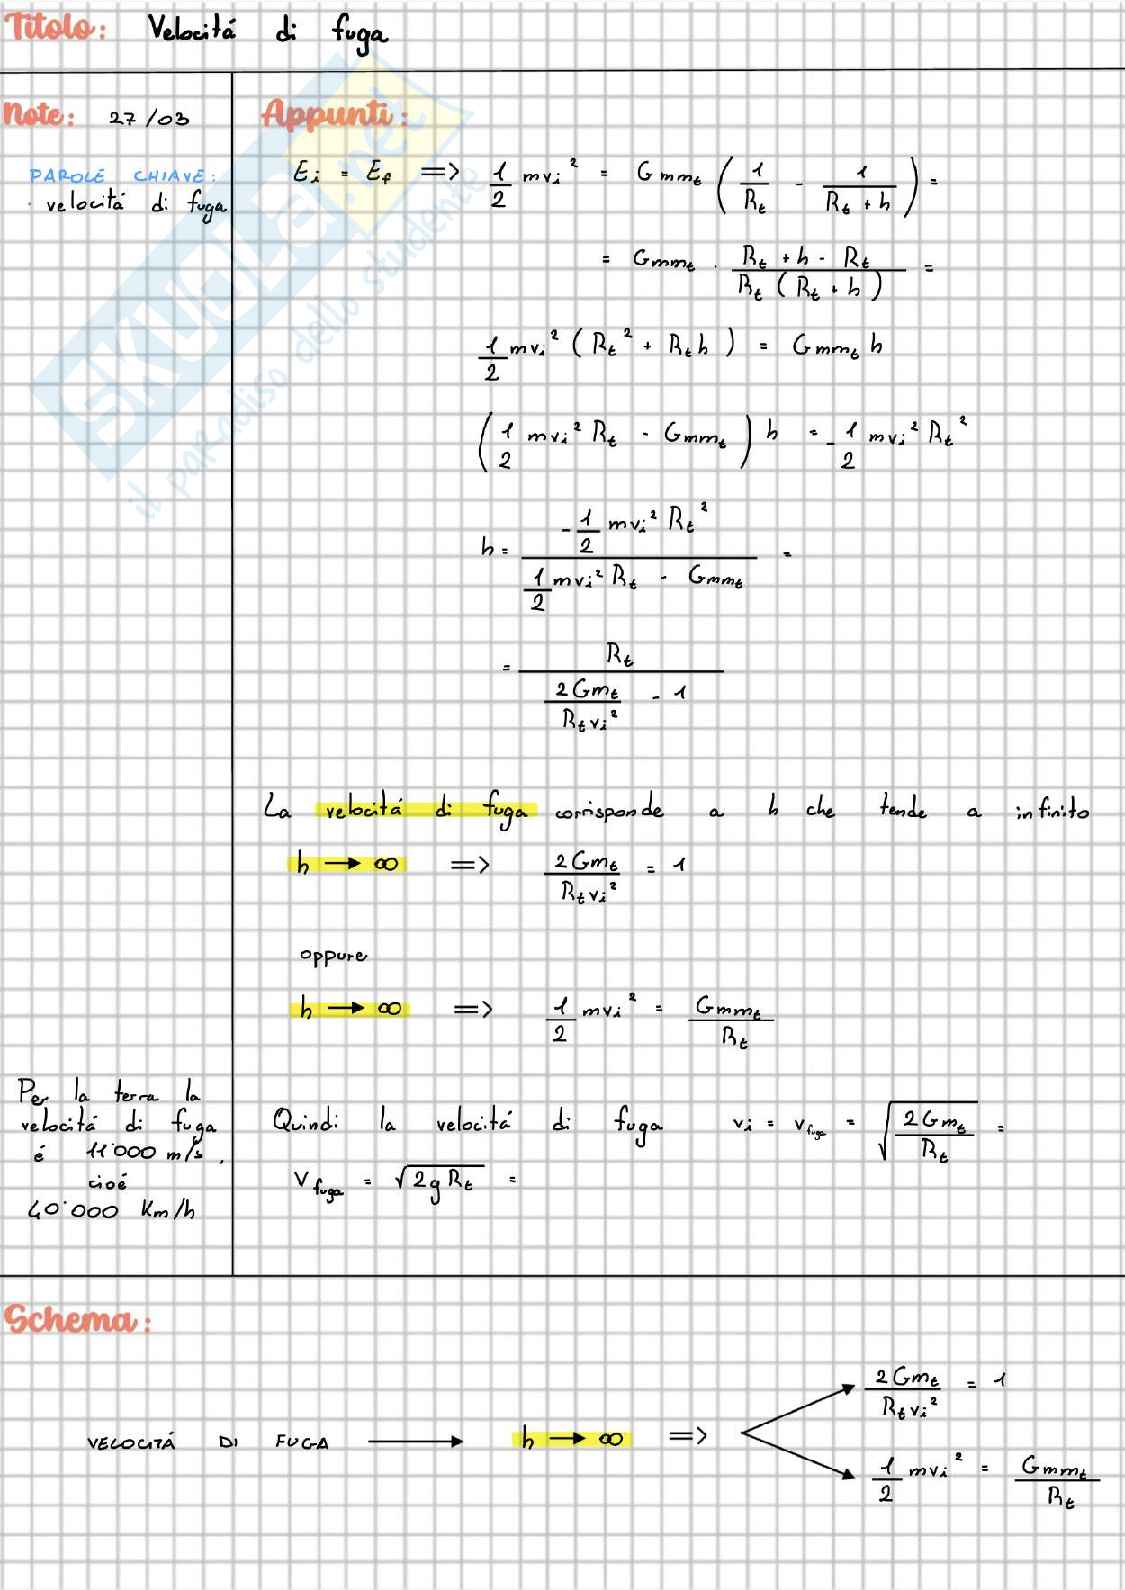 Titolo: Velocitá di fuga
Note: 27/03
PAROLE CHIAVE:
· velocitá di fuga
Appunti:
Ei = Ef => 1/2 mvi² = Gmmt (1/Rt - 1/(Rt + h)) =
= Gmmt · (Rt + h - Rt)/(Rt (Rt + h)) =
1/2 mvi² (Rt² + Rt h) = Gmmt h
(1/2 mvi² Rt - Gmmt) h = -1/2 mvi² Rt²
h = (-1/2 mvi² Rt²)/(1/2 mvi² Rt - Gmmt) =
= Rt/(2Gmt/(Rt vi²) - 1)
La velocitá di fuga corrisponde a h che tende a infinito
h → ∞ => 2Gmt/(Rt vi²) = 1
oppure
h → ∞ => 1/2 mvi² = Gmmt/Rt
Per la terra la
velocitá di fuga
é 11'000 m/s,
cioé
40'000 Km/h
Quindi la velocitá di fuga vi = vfuga = √(2Gmt/Rt) =
Vfuga = √(2gRt) =
Schema:
VELOCITÁ DI FUGA → h → ∞ => 2Gmt/(Rt vi²) = 1
1/2 mvi² = Gmmt/Rt
SKUOLA.net
il paradiso dello studente